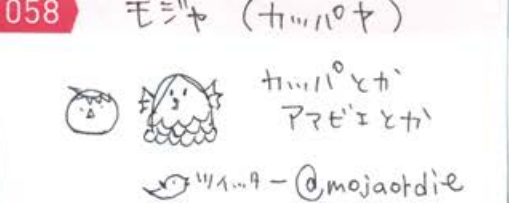 058
モジャ（カッパヤ）
カッパとか
アマビエとか
ツイッター @mojaordie